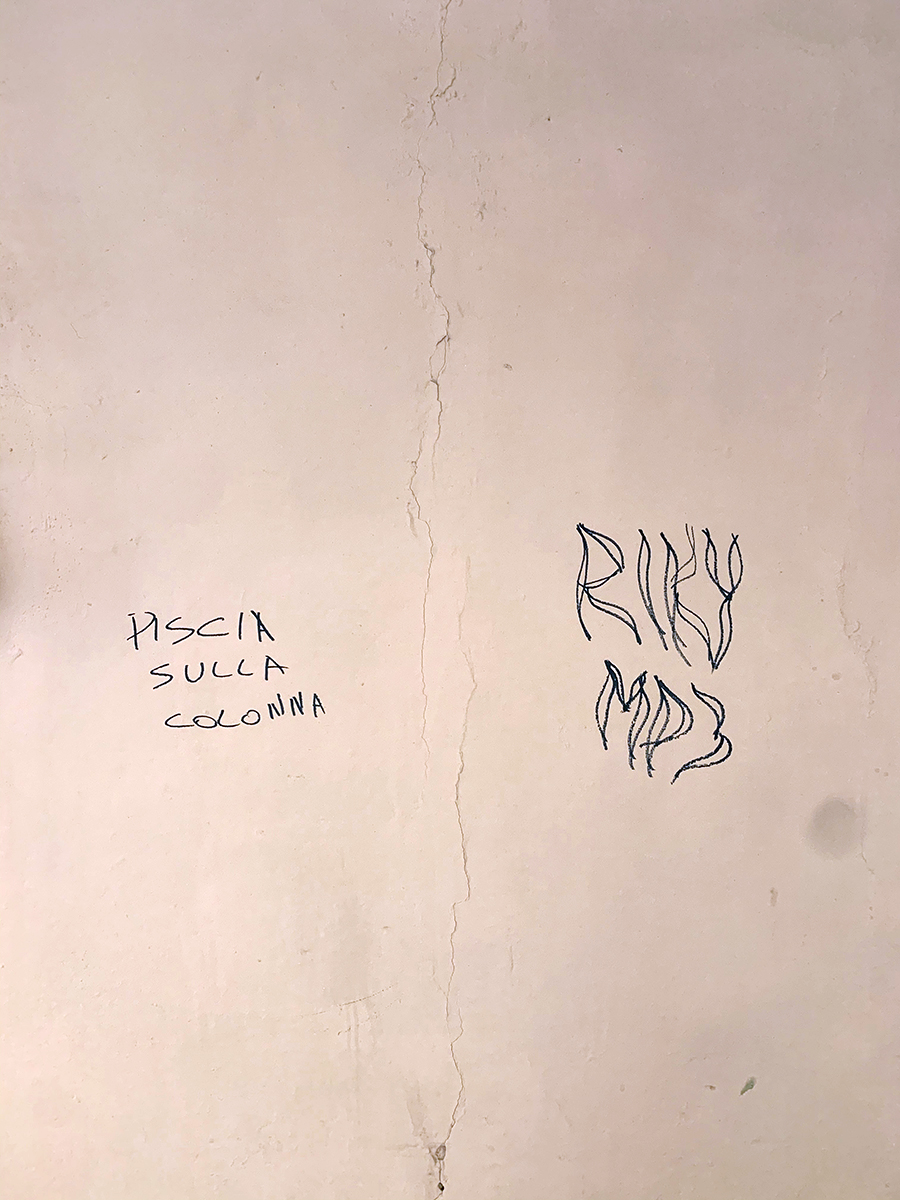 PISCIA
SULLA
COLONNA
RIKY
MP3